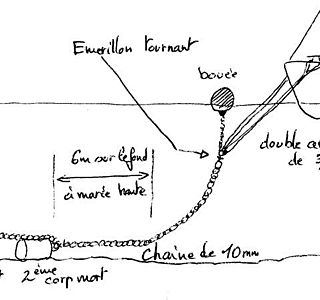 Emerillon tournant
bouée
double a
de 3
6m sur le fond
à marée haute
Chaîne de 10mm
2ème
corp mort